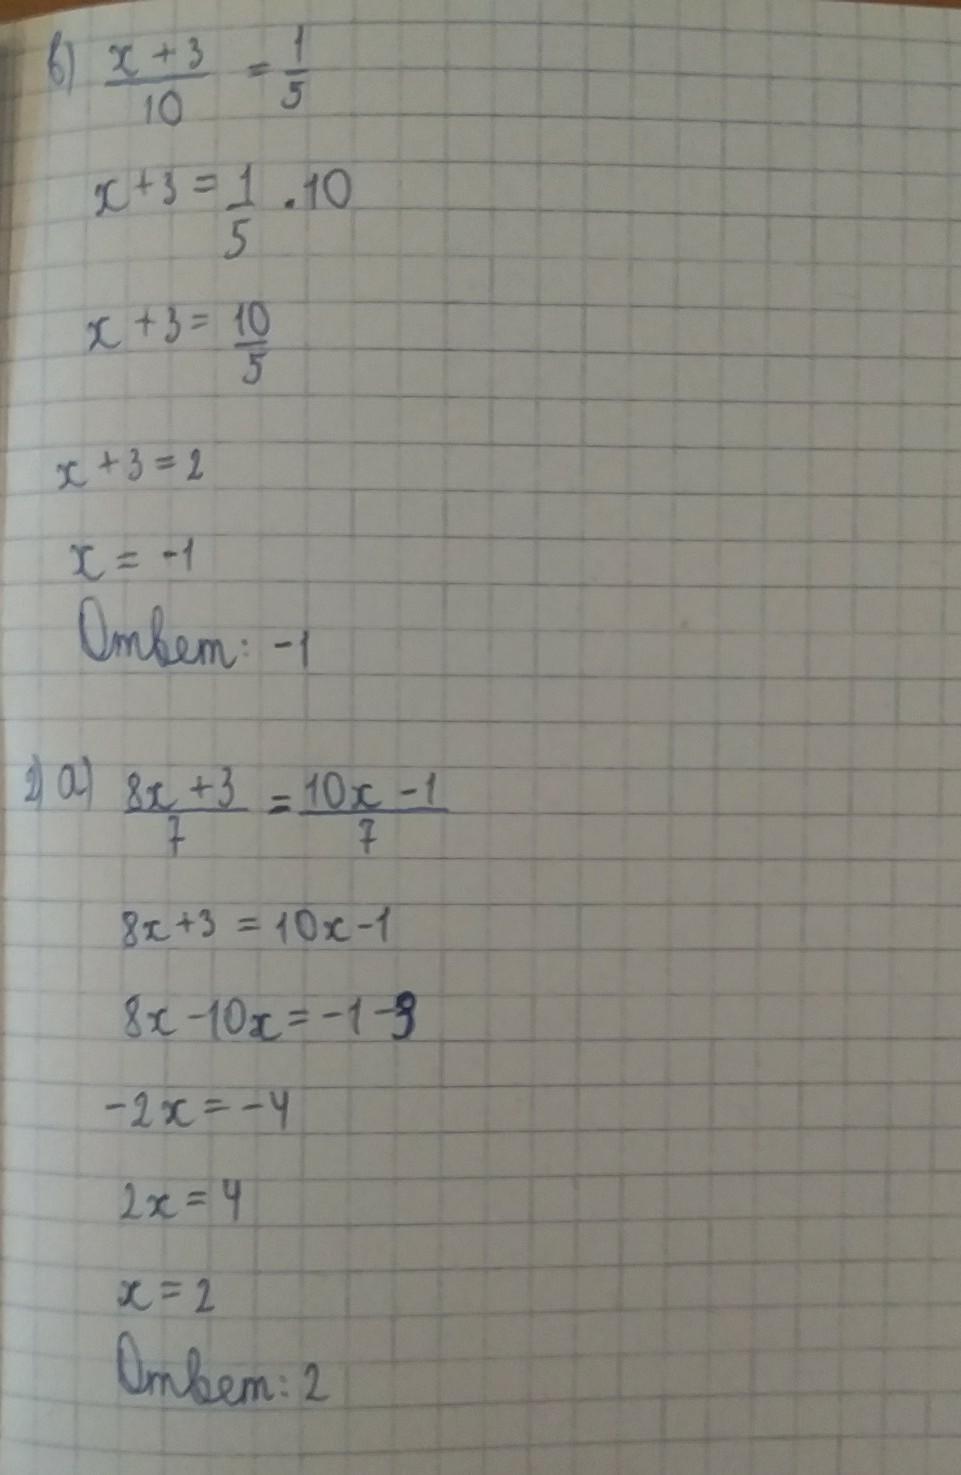 в) x + 3 / 10 = 1/5
x + 3 = 1/5 . 10
x + 3 = 10/5
x + 3 = 2
x = -1
Ответ: -1
2) а) 8x + 3 / 7 = 10x - 1 / 7
8x + 3 = 10x - 1
8x - 10x = -1 - 3
-2x = -4
2x = 4
x = 2
Ответ: 2